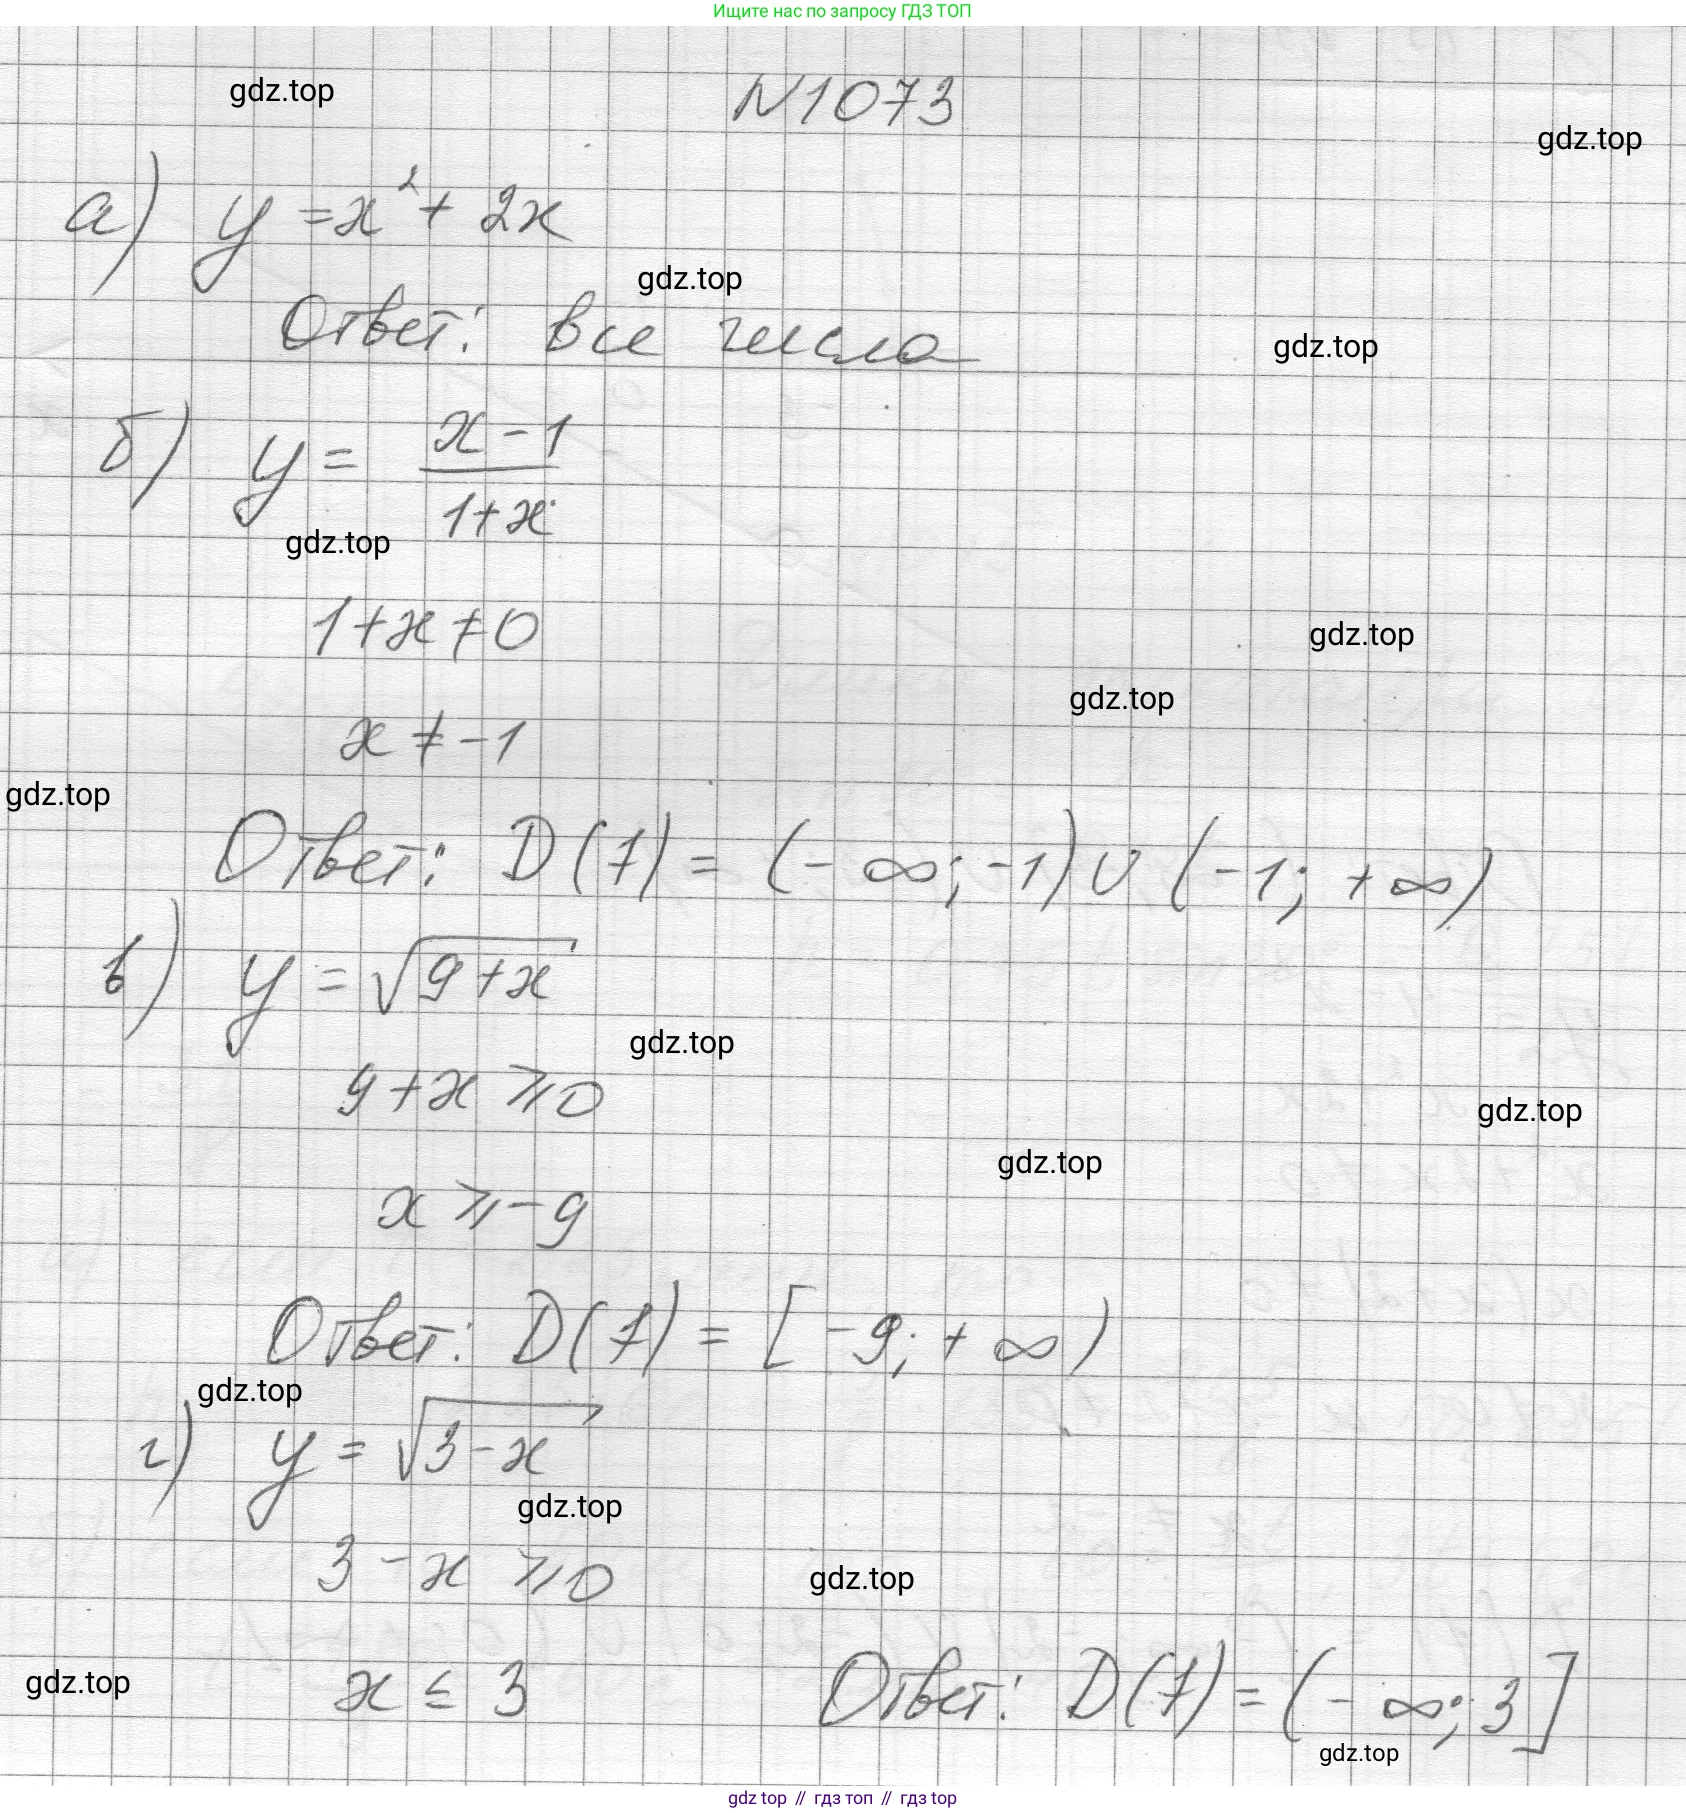 Ищите нас по запросу ГДЗ ТОП
gdz.top
N1073
gdz.top
а) y = x² + 2x
gdz.top
Ответ: все числа
gdz.top
б) y = (x - 1)/(1 + x)
gdz.top
1 + x ≠ 0
gdz.top
gdz.top
x ≠ -1
gdz.top
Ответ: D(f) = (-∞; -1) ∪ (-1; +∞)
в) y = √(9 + x)
gdz.top
9 + x ⩾ 0
gdz.top
gdz.top
x ⩾ -9
Ответ: D(f) = [-9; +∞)
gdz.top
г) y = √(3 - x)
gdz.top
3 - x ⩾ 0
gdz.top
gdz.top
x ≤ 3 Ответ: D(f) = (-∞; 3]
gdz.top
gdz top // гдз топ // гяз top